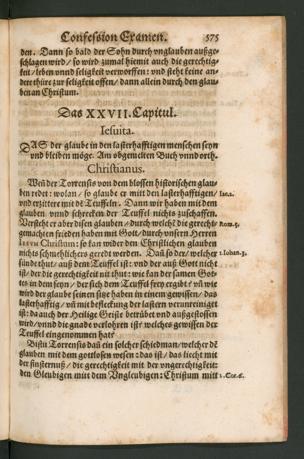 Confession Examen. 575
den. Dann so bald der Sohn durch vnglauben außge-
schlagen wird/ so wird zumal hiemit auch die gerechtig-
keit/ leben vnnd seligkeit verworffen: vnd stehet keine an-
dere thüre zur seligkeit offen/ dann allein durch den glau-
ben an Christum.
Das XXVII. Capitul.
Iesuita.
DAS der glaube in den lasterhafftigen menschen seyn
vnd bleiben möge. Am obgemelten Buch vnnd orth.
Christianus.
Weñ der Torrensis von dem blossen historischen glau-
ben redet: wolan/ so glaube er mit den lasterhafftigen/ Iac.2.
vnd erzittere mit dẽ Teuffeln. Dann wir haben mit dem
glauben vnnd schrecken der Teuffel nichts zuschaffen.
Verstehet er aber disen glauben/ durch welchẽ die gerecht- Rom.5.
gemachten frieden haben mit Gott/ durch vnsern Herren
IESVM Christum: so kan wider den Christlichen glauben
nichts schmehlichers geredt werden. Dañ so der/ welcher 1.Iohan.3.
sünde thut/ auß dem Teuffel ist: vnd der auß Gott nicht
ist/ der die gerechtigkeit nit thut: wie kan der samen Got-
tes in dem seyn/ der sich dem Teuffel frey ergibt? vñ wie
wird der glaube seinen sitze haben in einem gewissen/ das
lasterhafftig/ vñ mit befleckung der lastern verunreiniget
ist: da auch der Heilige Geiste betrübet vnd außgestossen
wird/ vnnd die gnade verlohren ist? welches gewissen der
Teuffel eingenommen hat?
Bistu Torrensis dañ ein solcher schiedman/ welcher dẽ
glauben mit dem gottlosen wesen: das ist/ das liecht mit
der finsternuß/ die gerechtigkeit mit der vngerechtigkeit:
den Gleubigen mitt dem Vngleubigen: Christum mitt 2.Cor.6.